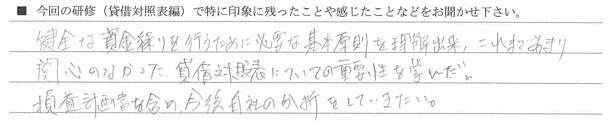 ■ 今回の研修（貸借対照表編）で特に印象に残ったことや感じたことなどをお聞かせ下さい。
健全な資金繰りを行うために必要な基本原則を理解出来、これまであまり
関心のなかった貸借対照表についての重要性を学んだ。
損益計画書を含め、今後自社の分析をしていきたい。